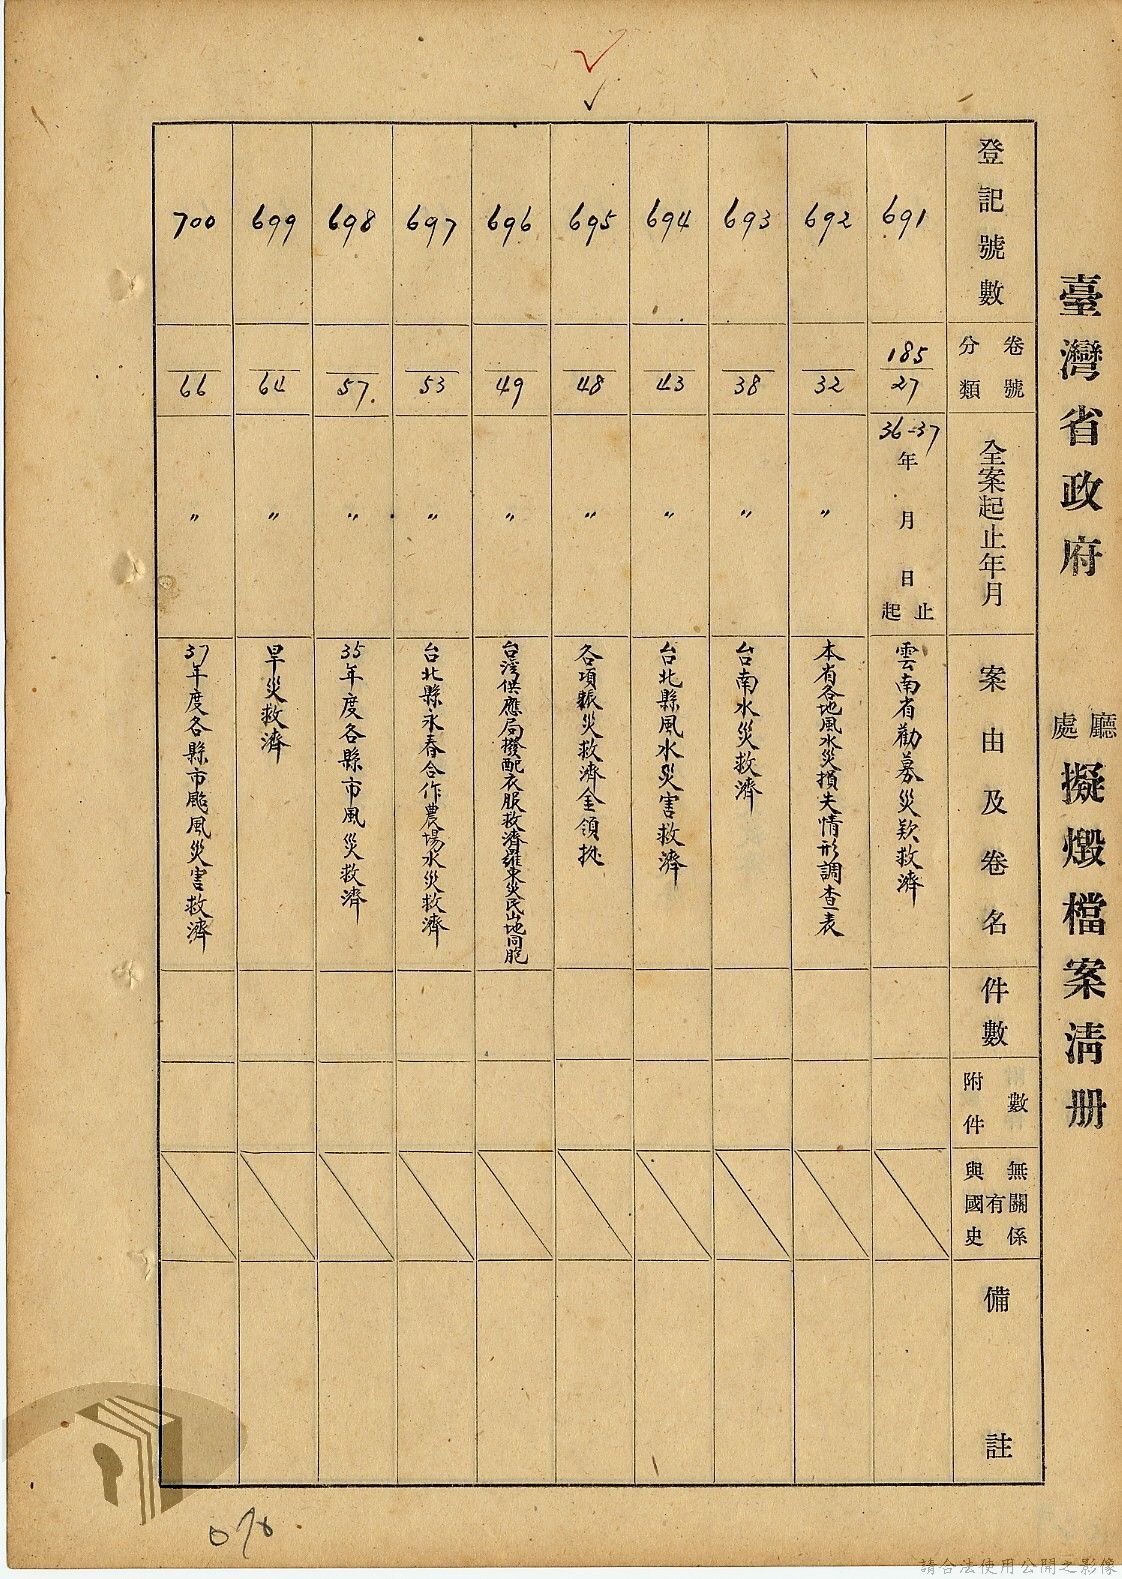 臺灣省政府 廳處 擬燬檔案清册
登記號數
卷號 分類
全案起止年月
案由及卷名
件數
附件數
與國史有無關係
備註
691
185/27
36-37年 月 日 起止
雲南省勸募災款救濟
692
32
〃
本省各地風水災損失情形調查表
693
38
〃
台南水災救濟
694
43
〃
台北縣風水災害救濟
695
48
〃
各項賑災救濟金領
696
49
〃
台湾供應局撥配衣服救濟羅東災民山地同胞
697
53
〃
台北縣永春合作農場水災救濟
698
57.
〃
35年度各縣市風災救濟
699
64
〃
旱災救濟
700
66
〃
37年度各縣市颱風災害救濟
請合法使用公開之影像